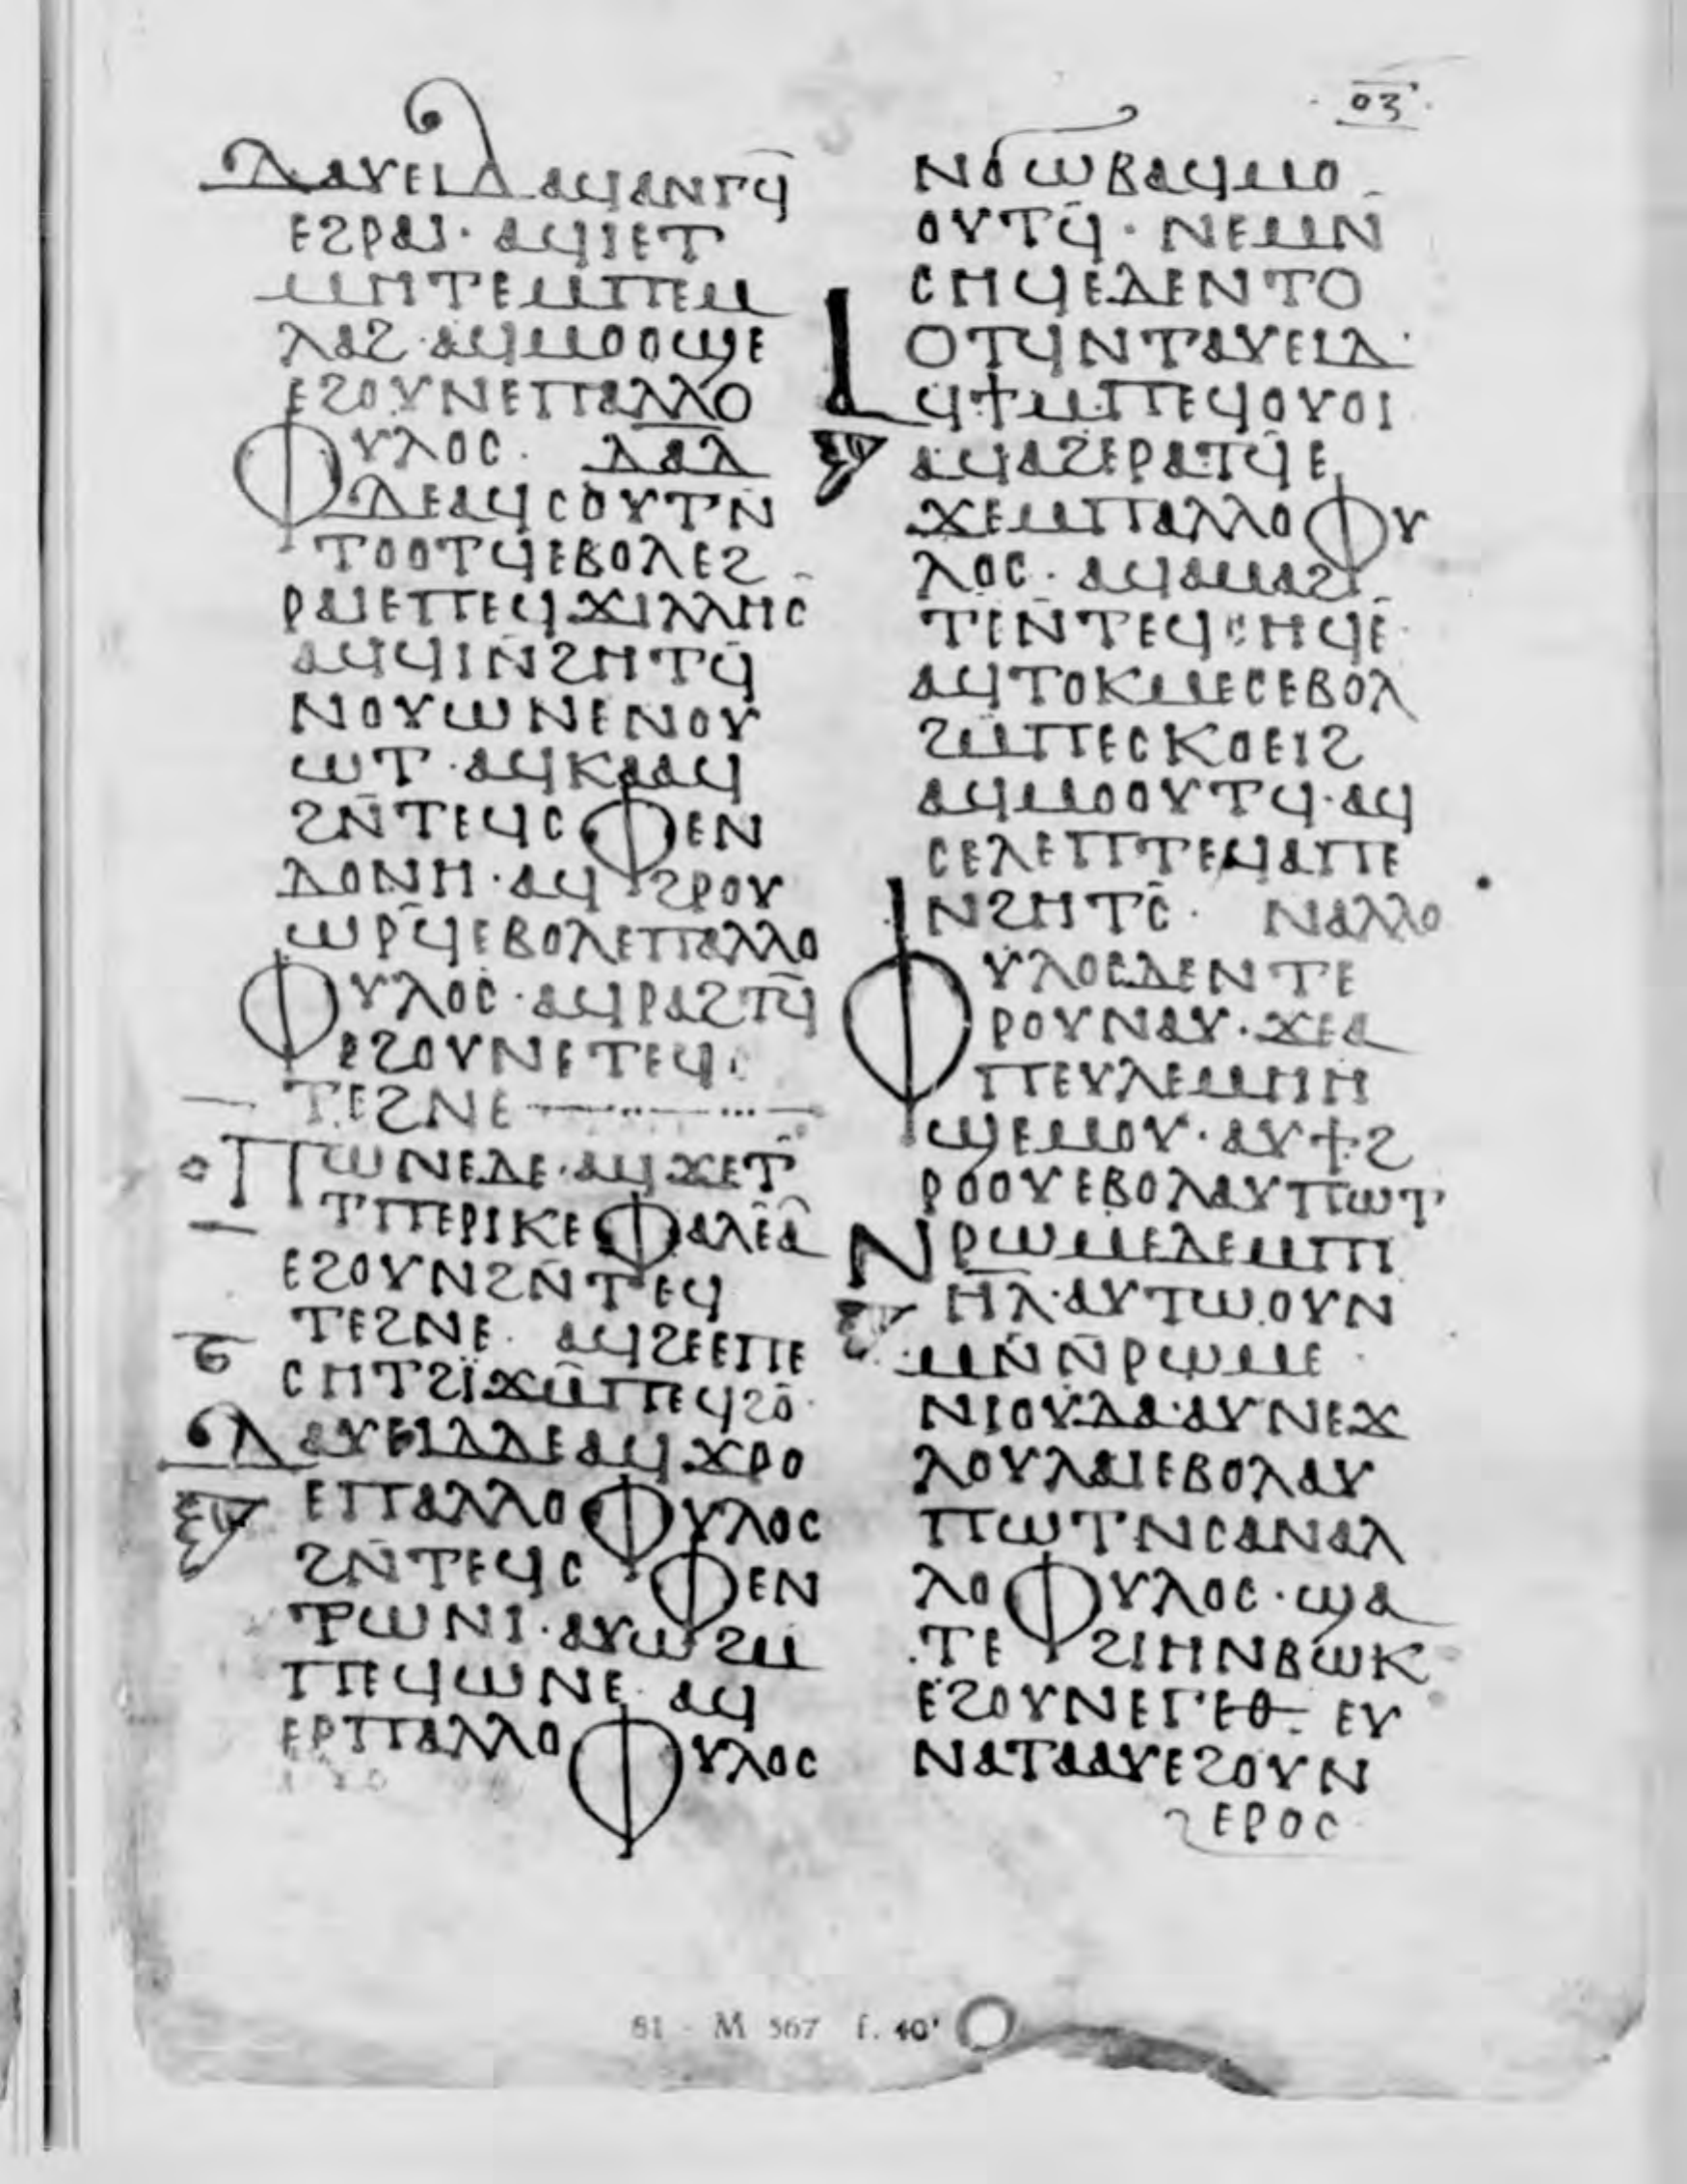 ⲟⲍ
ⲇⲁⲩⲉⲓⲇ ⲁϥⲁⲛⲧϥ̄
ⲉϩⲣⲁⲓ · ⲁϥⲓⲉⲧ
ⲙⲏⲧⲉⲙⲡⲉⲙ
ⲗⲁϩ · ⲁϥⲙⲟⲟϣⲉ
ⲉϩⲟⲩⲛⲉⲡⲁⲗⲗⲟ
ⲫⲩⲗⲟⲥ · ⲇⲁⲇ
ⲇⲉⲁϥⲥⲟⲩⲧⲛ̄
ⲧⲟⲟⲧϥⲉⲃⲟⲗⲉϩ
ⲣⲁⲓⲉⲡⲉϥϫⲓⲗⲗⲏⲥ̄
ⲁϥϥⲓⲛ̄ϩⲏⲧϥ̄
ⲛⲟⲩⲱⲛⲉⲛⲟⲩ
ⲱⲧ · ⲁϥⲕⲁⲁϥ
ϩⲛ̄ⲧⲉϥⲥⲫⲉⲛ
ⲇⲟⲛⲏ · ⲁϥϩⲣⲟⲩ
ⲱⲣϥ̄ⲉⲃⲟⲗⲉⲡⲁⲗⲗⲟ
ⲫⲩⲗⲟⲥ · ⲁϥⲣⲁϩⲧϥ̄
ⲉϩⲟⲩⲛⲉⲧⲉϥ
ⲧⲉϩⲛⲉ
ⲡⲱⲛⲉⲇⲉ · ⲁϥϫⲉⲧ̄
ⲧⲡⲉⲣⲓⲕⲉⲫⲁⲗⲉⲁ
ⲉϩⲟⲩⲛϩⲛ̄ⲧⲉϥ
ⲧⲉϩⲛⲉ · ⲁϥϩⲉⲉⲡⲉ
ⲥⲏⲧϩⲓϫⲙ̄ⲡⲉϥϩⲟ̄ ·
ⲇⲁⲩⲉⲓⲇⲇⲉⲁϥϫⲣⲟ
ⲉⲡⲁⲗⲗⲟⲫⲩⲗⲟⲥ
ϩⲛ̄ⲧⲉϥⲥⲫⲉⲛ
ⲧⲱⲛⲓ · ⲁⲩⲱϩⲙ
ⲡⲉϥⲱⲛⲉ · ⲁϥ
ⲉⲣⲡⲁⲗⲗⲟⲫⲩⲗⲟⲥ
ⲛϭⲱⲃⲁϥⲙⲟ
ⲟⲩⲧϥ̄ · ⲛⲉⲙⲛ̄
ⲥⲏϥⲉⲇⲉⲛⲧⲟ
ⲟⲧϥⲛⲧⲁⲩⲉⲓⲇ ·
ⲁϥϯⲙⲡⲉϥⲟⲩⲟⲓ
ⲁϥⲁϩⲉⲣⲁⲧϥ̄ⲉ
ϫⲉⲙⲡⲁⲗⲗⲟⲫⲩ
ⲗⲟⲥ · ⲁϥⲁⲙⲁϩ
ⲧⲓⲛ̄ⲧⲉϥⲥⲏϥⲉ̄
ⲁϥⲧⲟⲕⲙⲉⲥⲉⲃⲟⲗ
ϩⲙ̄ⲡⲉⲥⲕⲟⲉⲓϩ
ⲁϥⲙⲟⲟⲩⲧϥ · ⲁϥ
ⲥⲉⲗⲉⲡⲧⲉϥⲁⲡⲉ
ⲛϩⲏⲧⲥ̄ · ⲛⲁⲗⲗⲟ
ⲫⲩⲗⲟⲥⲇⲉⲛⲧⲉ
ⲣⲟⲩⲛⲁⲩ · ϫⲉⲁ
ⲡⲉⲩⲗⲉⲙⲏⲏ
ϣⲉⲙⲟⲩ · ⲁⲩϯϩ
ⲣⲟⲟⲩⲉⲃⲟⲗⲁⲩⲡⲱⲧ
ⲛⲣⲱⲙⲉⲇⲉⲙⲡⲓ
ⲏ̄ⲗ · ⲁⲩⲧⲱⲟⲩⲛ
ⲙⲛ̄ⲛ̄ⲣⲱⲙⲉ ·
ⲛⲓⲟⲩⲇⲁ · ⲁⲩⲛⲉϫ
ⲗⲟⲩⲗⲁⲓⲉⲃⲟⲗⲁⲩ
ⲡⲱⲧⲛⲥⲁⲛⲁⲗ
ⲗⲟⲫⲩⲗⲟⲥ · ϣⲁ
ⲧⲉϩⲓⲏⲛⲃⲱⲕ
ⲉϩⲟⲩⲛⲉⲅⲉⲑ · ⲉⲩ
ⲛⲁⲧⲁⲁⲩⲉϩⲟⲩⲛ
ⲉⲣⲟⲥ
81 - M 567 f. 40'